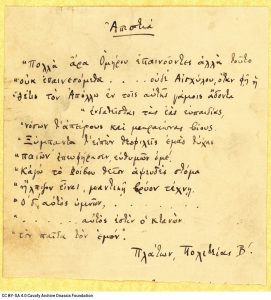 Ἀπιστία
"Πολλὰ ἄρα Ὁμήρου ἐπαινοῦντες ἀλλὰ τοῦτο
"οὐκ ἐπαινεσόμεθα . . . . οὐδὲ Αἰσχύλου, ὅταν φῇ ἡ
"Θέτις τὸν Ἀπόλλω ἐν τοῖς αὑτῆς γάμοις ᾄδοντα
"ἐνδατεῖσθαι τὰς ἑὰς εὐπαιδίας,
"νόσων τ' ἀπείρους καὶ μακραίωνας βίους.
"Ξύμπαντά τ' εἰπὼν θεοφιλεῖς ἐμὰς τύχας
"παιῶν' ἐπευφήμησεν, εὐθυμῶν ἐμέ.
"Κἀγὼ τὸ Φοίβου θεῖον ἀψευδὲς στόμα
"ἤλπιζον εἶναι, μαντικῇ βρύον τέχνῃ.
"Ὁ δ', αὐτὸς ὑμνῶν, . . . . . .
. . . . . . αὐτός ἐστιν ὁ κτανὼν
"τὸν παῖδα τὸν ἐμόν".
Πλάτων, Πολιτείας Β΄.
CC BY-SA 4.0 Cavafy Archive Onassis Foundation